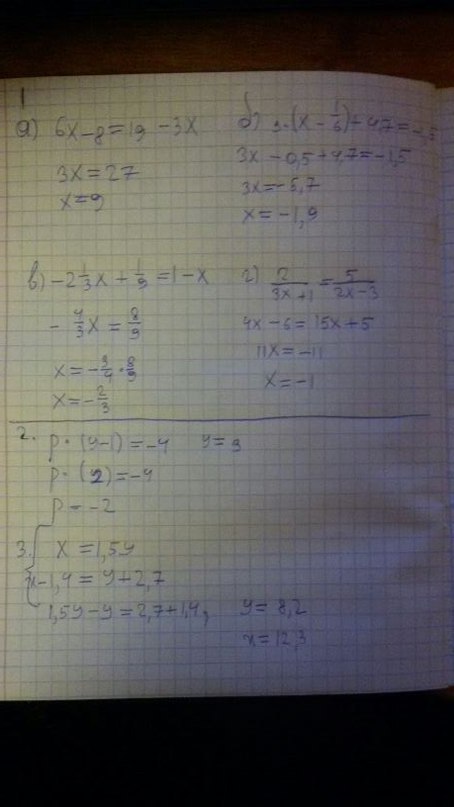 1
а) 6x - 8 = 19 - 3x
3x = 27
x = 9
б) 3·(x - 1/6) + 4,7 = -1,5
3x - 0,5 + 4,7 = -1,5
3x = -5,7
x = -1,9
в) -2 1/3 x + 1/9 = 1 - x
- 4/3 x = 8/9
x = - 3/4 · 8/9
x = - 2/3
г) 2/(3x + 1) = 5/(2x - 3)
4x - 6 = 15x + 5
11x = -11
x = -1
2. p · (y - 1) = -4 y = 3
p · (2) = -4
p = -2
3. { x = 1,5y
x - 1,4 = y + 2,7
1,5y - y = 2,7 + 1,4, y = 8,2
x = 12,3